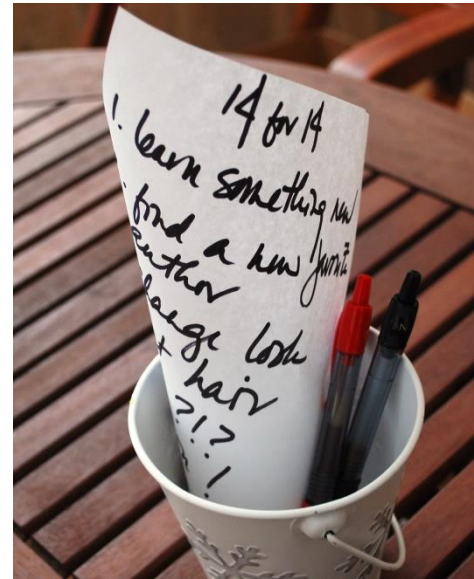 14 for 14
1. learn something new
. find a new favorite
author
hange look
hair
?!?
!